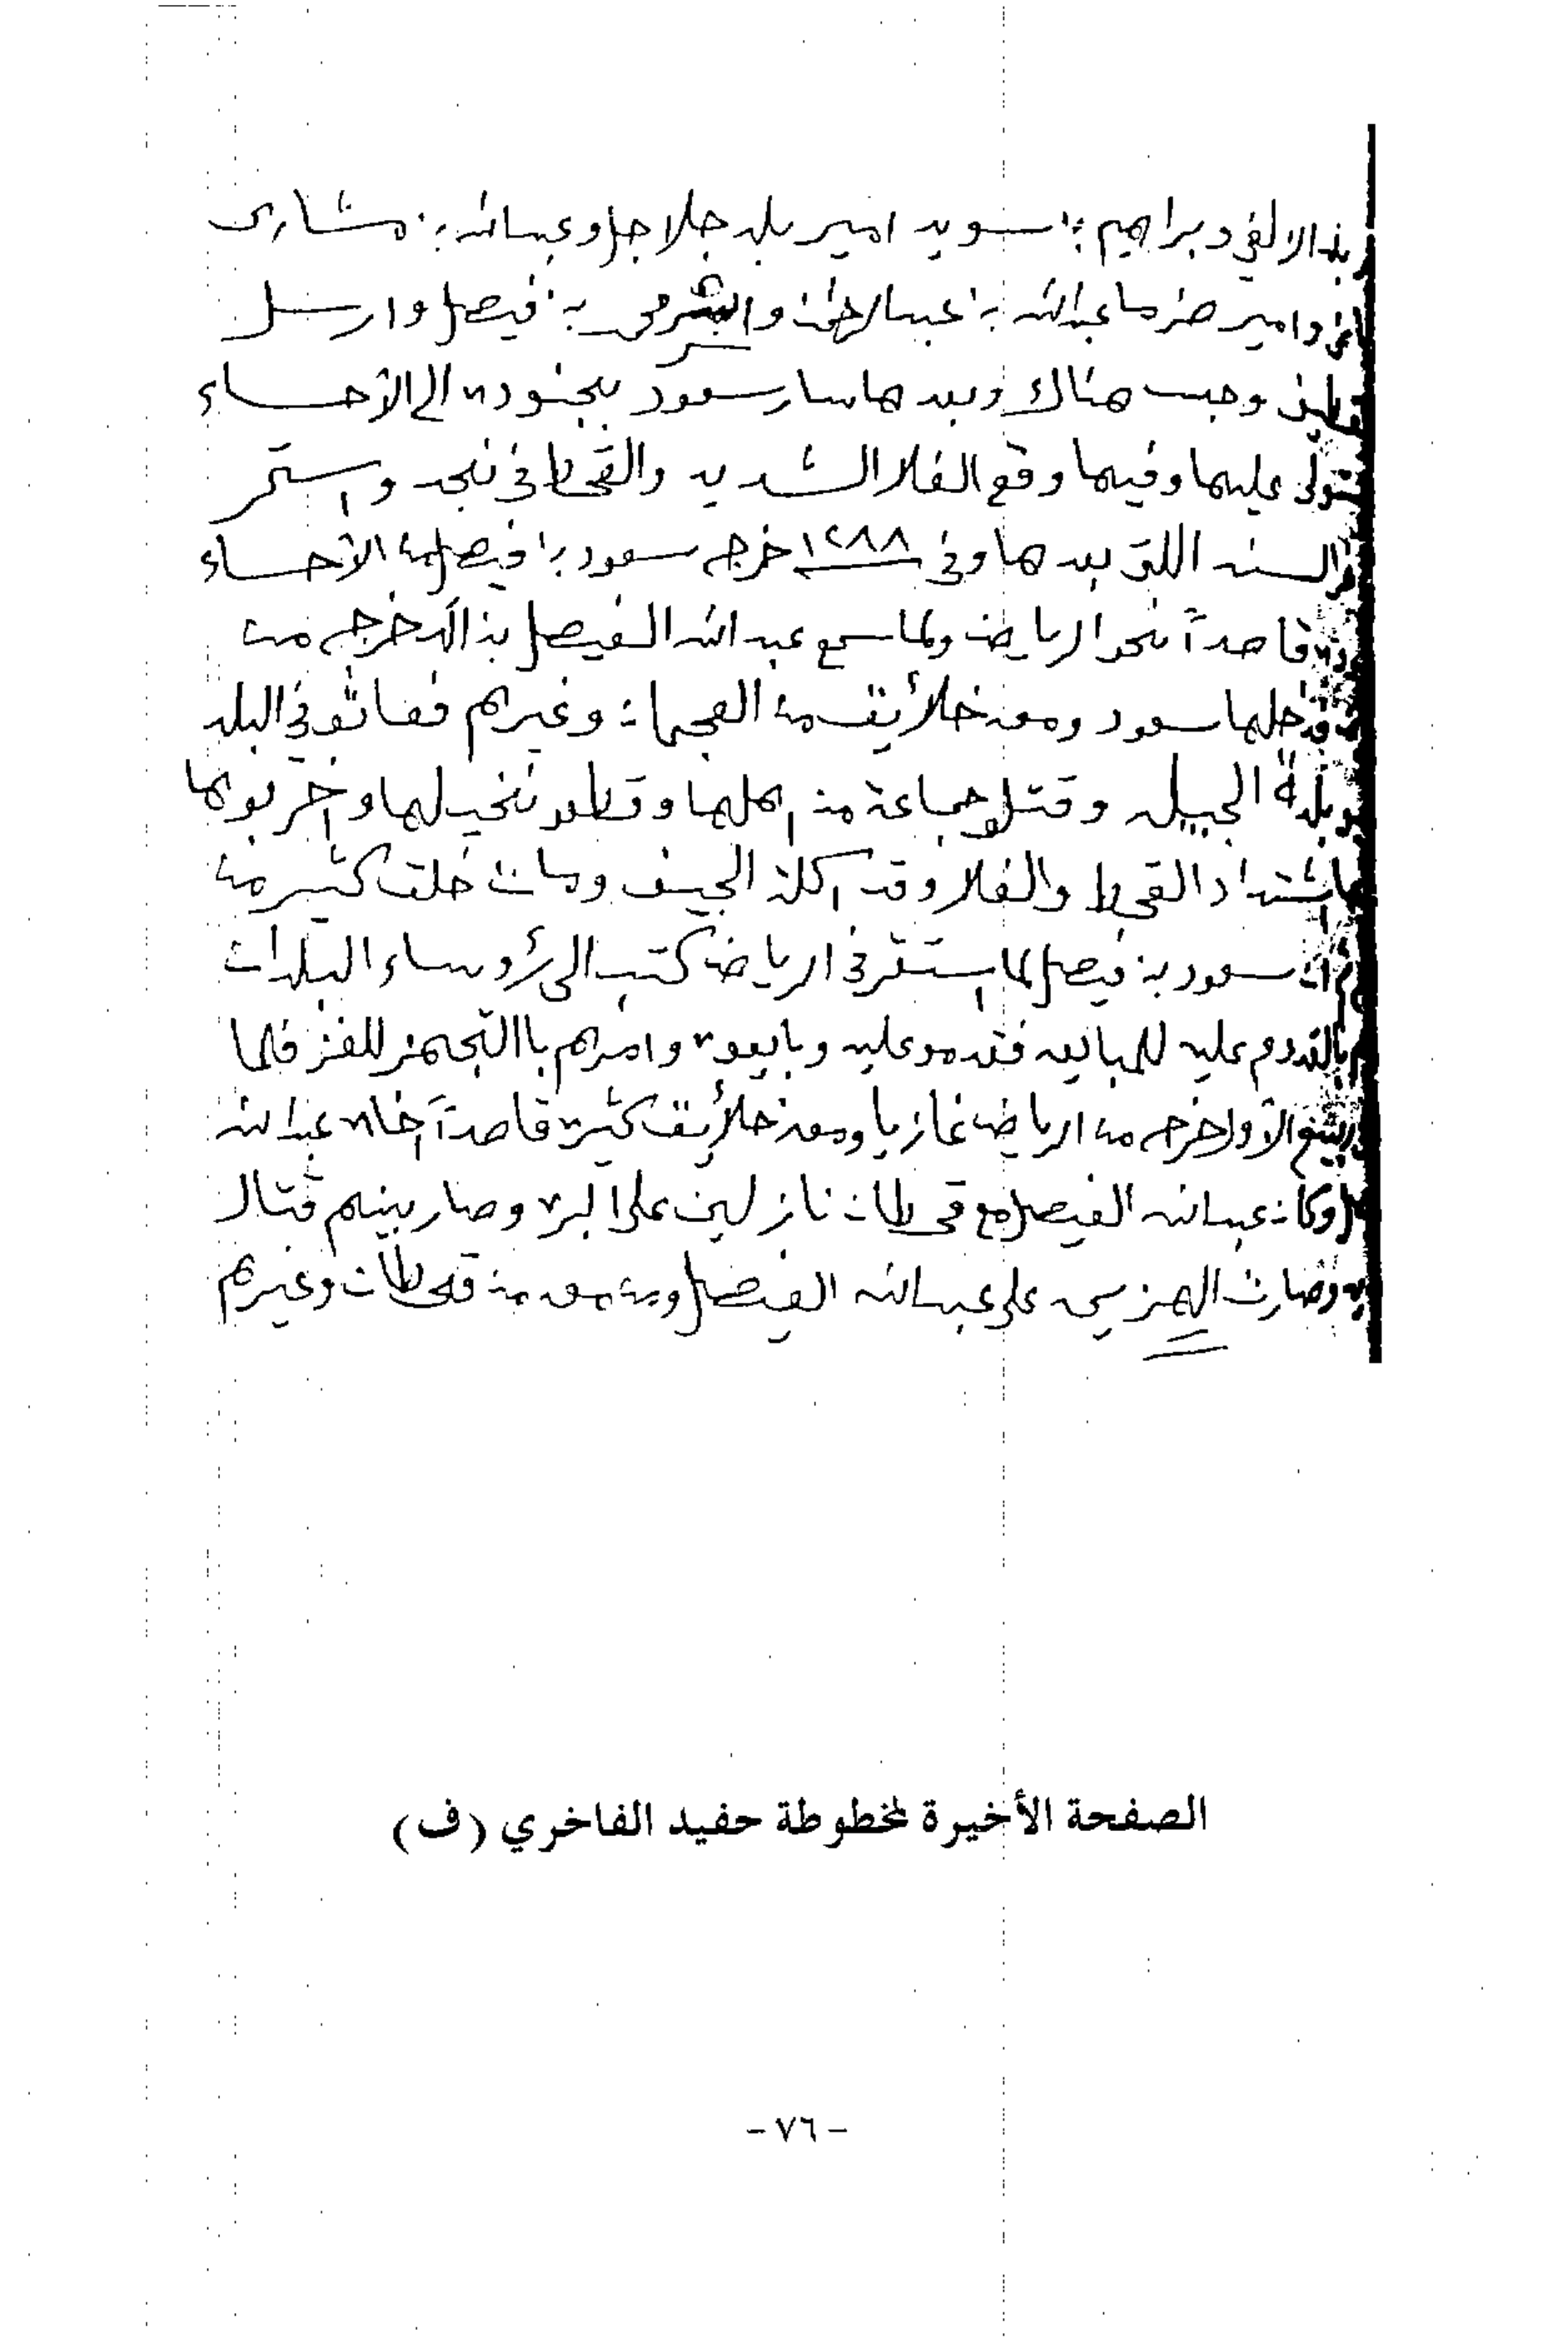 وبراهيم بن سويد امير بلد جلاجل وعبدالله بن مشارى
وامير ضرما عبدالله بن عبدالرحمن بن فيصل وارسل
هناك وبعدها سار سعود بجنوده الى الأحساء
عليها وفيها وقع الغلا الشديد والقحط في نجد واستمر
السنه اللتي بعدها وفي ١٢٨٨ خرج سعود بن فيصل من الأحساء
قاصداً نحو الرياض ولما سمع عبدالله الفيصل بذالك خرج من
سعود ومعه خلأيق من العجمان وغيرهم فعاثو في البلد
بلدة الجبيله وقتلو جماعة من اهلها وقطعو نخيلها واخربوها
اشتداد القحط والغلا وقد اكلة الجيف ومات خلق كثير من
سعود بن فيصل لما استقر في الرياض كتب الى رؤساء البلدان
بالقدوم عليه للمبايعه فقدمو عليه وبايعوه وامرهم باالتجهز للغز فلما
ربيع الأول خرج من الرياض غازيا ومعه خلأيق كثيره قاصداً اخاه عبدالله
وكان عبدالله الفيصل مع قحطان نازلين على البره وصار بينهم قتال
وصارت الهزيمه على عبدالله الفيصل ومن معه من قحطان وغيرهم
الصفحة الأخيرة لمخطوطة حفيد الفاخري (ف)
- ٧٦ -